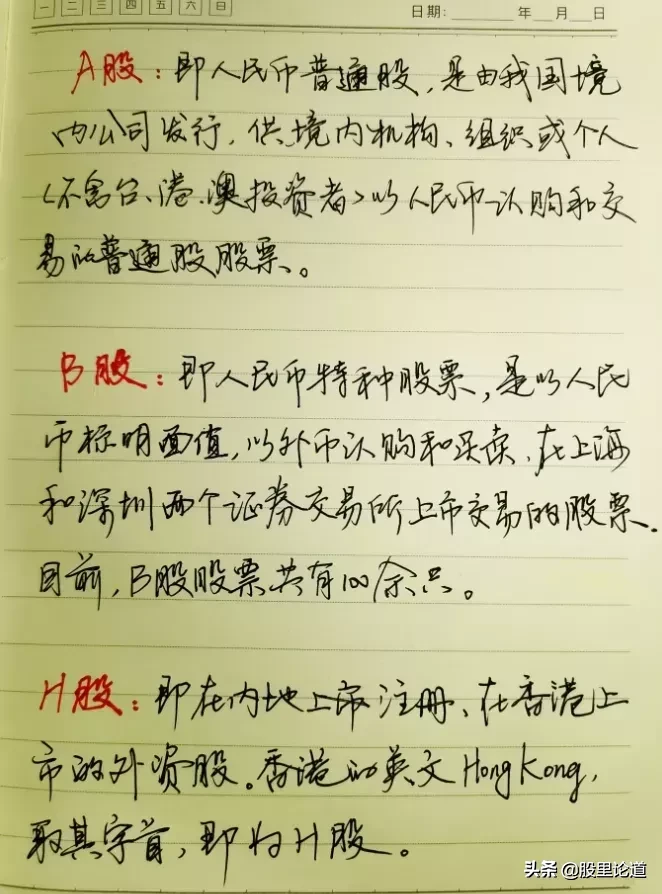 一 二 三 四 五 六 日 日期: 年 月 日
A股:即人民币普通股,是由我国境
内公司发行,供境内机构、组织或个人
(不含台、港、澳投资者)以人民币认购和交
易的普通股股票。
B股:即人民币特种股票,是以人民
币标明面值,以外币认购和买卖、在上海
和深圳两个证券交易所上市交易的股票.
目前,B股股票共有100余只。
H股:即在内地上市注册、在香港上
市的外资股。香港的英文HongKong,
取其字首,即为H股。
头条 @股里论道